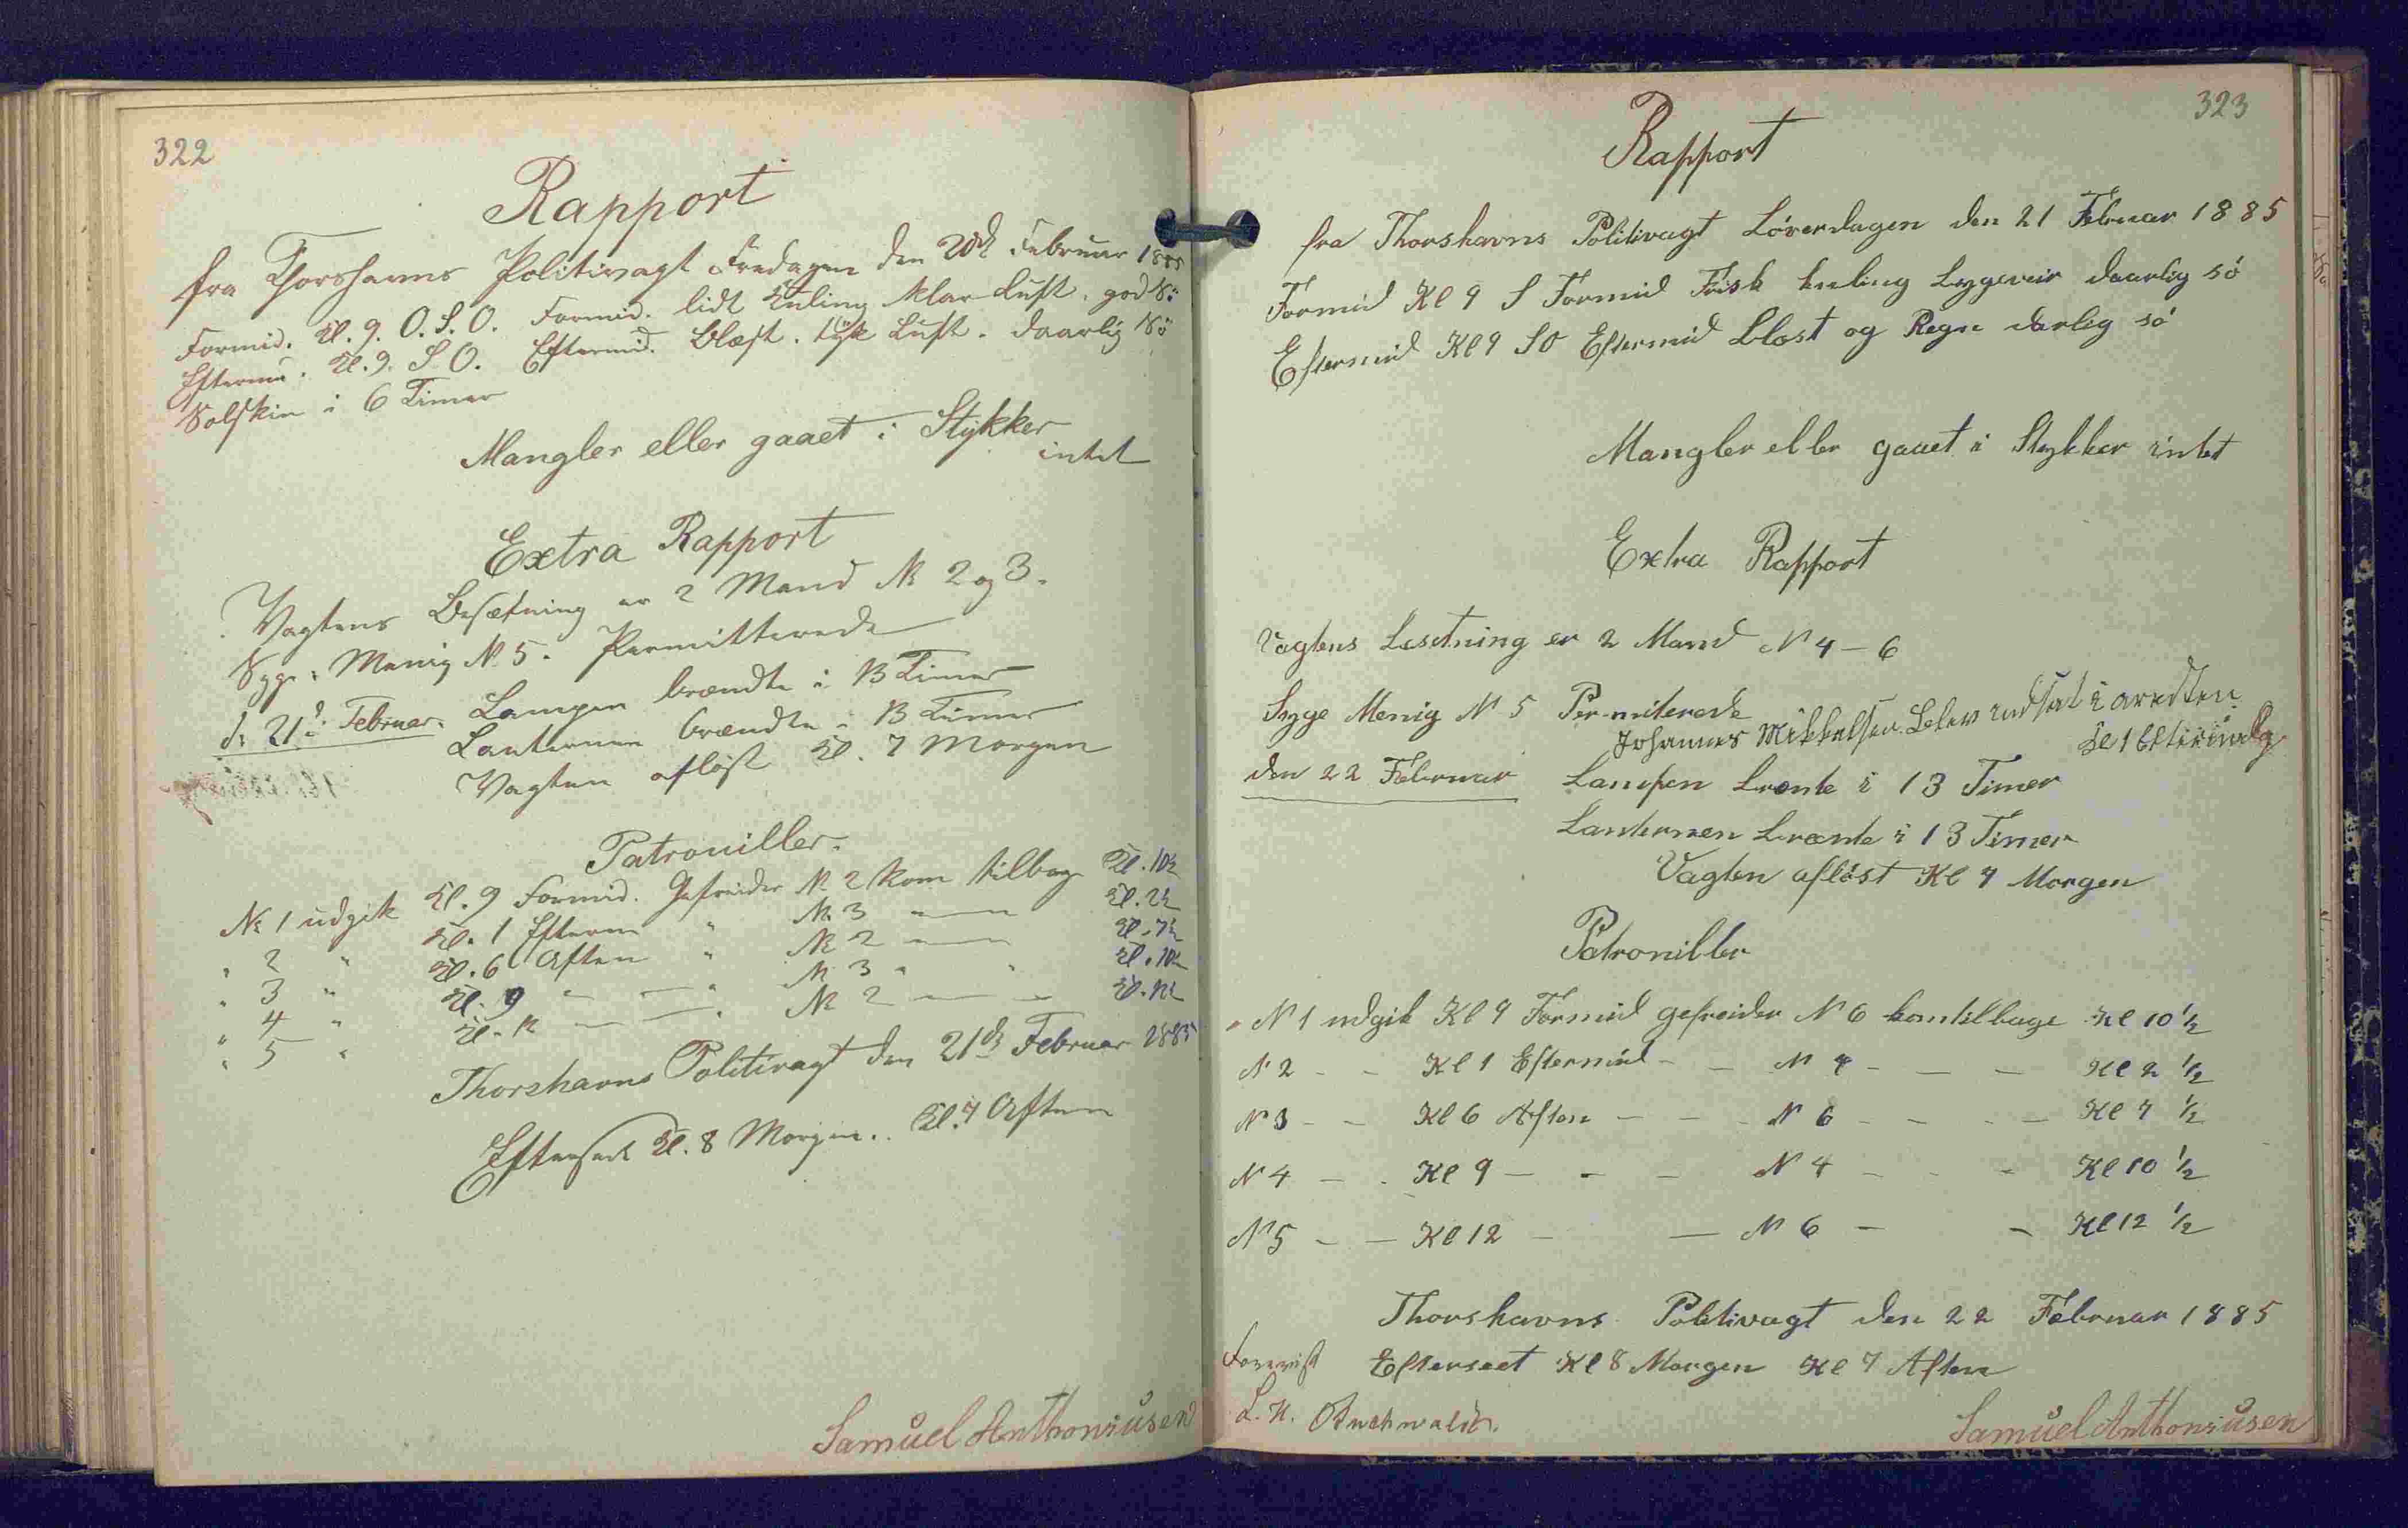 322
Rapport
fra Thorshavns Politivagt Fredagen den 20de Februar 1885
Formid. Kl. 9. O. S. O. Formid. lidt Kuling klar Luft. god Sö
Eftermid. Kl. 9. S. O. Eftermid. Blæst. tyk Luft. daarlig Sö
Solskin i 6 Timer
Mangler eller gaaet i Stykker
intet
Extra Rapport
Vagtens Besætning er 2 Mand № 2 og 3.
Syge: Menig № 5. Permitterede
d. 21d. Februar. Lampen brændte i 13 Timer
Lanternen brændte i 13 Timer
Vagten aflöst Kl. 7 Morgen
Patrouiller.
№ 1 udgik Kl. 9 Formid. Gefreider № 2 kom tilbage Kl. 10½
" 2 " Kl. 1 Efterm " № 3 — Kl. 2½
" 3 " Kl. 6 Aften " № 2 — Kl. 7½
" 4 " Kl. 9 — — " № 3 " " Kl. 10½
" 5 " Kl. 12 — — " № 2 — — Kl. 12½
Thorshavns Politivagt den 21de Februar 1885
Efterseet Kl. 8 Morgen. Kl. 7 Aften
Samuel Anthoniusen
323
Rapport
fra Thorshavns Politivagt Löverdagen den 21 Februar 1885
Formid Kl 9 S Formid Frisk kuling Bygeveir daarlig sö
Eftermid Kl 9 SO Eftermid Blost og Regn darlig sö
Mangler eller gaaet i Stykker intet
Extra Rapport
Vagtens Besetning er 2 Mand N 4 – 6
Syge Menig N 5 Permiterede
Johannes Mikkelsen Blev indsat i aresten
Kl 1
den 22 Februar Lampen brænte i 13 Timer
Lanternen brænte i 13 Timer
Vagten aflöst Kl 7 Morgen
Patrouiller
N 1 udgik Kl 9 Formid gefreider N 6 kom tilbage Kl 10 ½
N 2 – – Kl 1 Eftermid – – N 4 – – – Kl 2 ½
N 3 – – Kl 6 Aften – – – N 6 – – – – Kl 7 ½
N 4 – – Kl 9 – – – N 4 – – – Kl 10 ½
N 5 – – Kl 12 – – N 6 – – Kl 12 ½
Thorshavns Politivagt den 22 Februar 1885
Forevist Efterseet Kl 8 Morgen Kl 7 Aften
L. H. Buchwaldt.
Samuel Anthoniusen